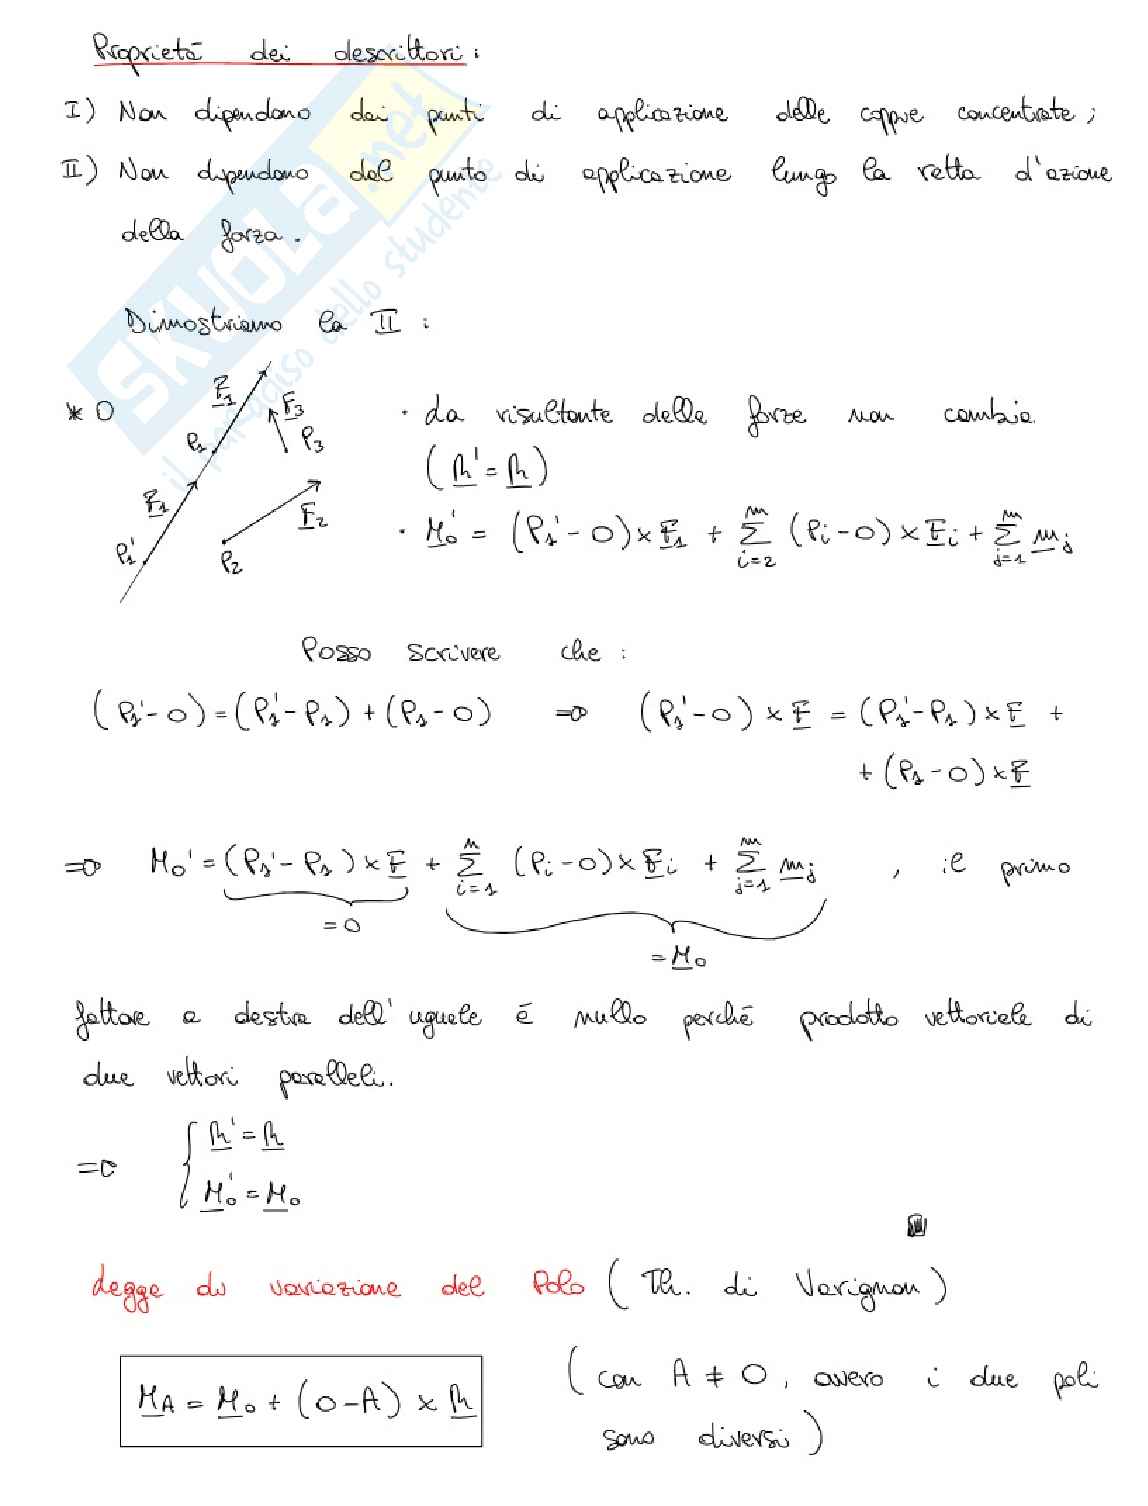 Proprietà dei descrittori:
I) Non dipendono dai punti di applicazione delle coppie concentrate;
II) Non dipendono dal punto di applicazione lungo la retta d'azione
della forza.
Dimostriamo la II:
* O
F₁
P₁
F₃
P₃
F₁
P₁'
F₂
P₂
· La risultante delle forze non cambia.
(R' = R)
· M₀' = (P₁' - O) × F₁ + Σ_{i=2}^{n} (Pi - O) × Fi + Σ_{j=1}^{m} mj
Posso scrivere che:
(P₁' - O) = (P₁' - P₁) + (P₁ - O) ⇒ (P₁' - O) × F = (P₁' - P₁) × F +
+ (P₁ - O) × F
⇒ M₀' = (P₁' - P₁) × F + Σ_{i=1}^{n} (Pi - O) × Fi + Σ_{j=1}^{m} mj , il primo
= 0
= M₀
fattore a destra dell'uguale è nullo perché prodotto vettoriale di
due vettori paralleli.
⇒ { R' = R
M₀' = M₀
Legge di variazione del Polo (Th. di Varignon)
M_A = M₀ + (O - A) × R
(con A ≠ O, ovvero i due poli
sono diversi)
SKUOLA.net
il paradiso dello studente